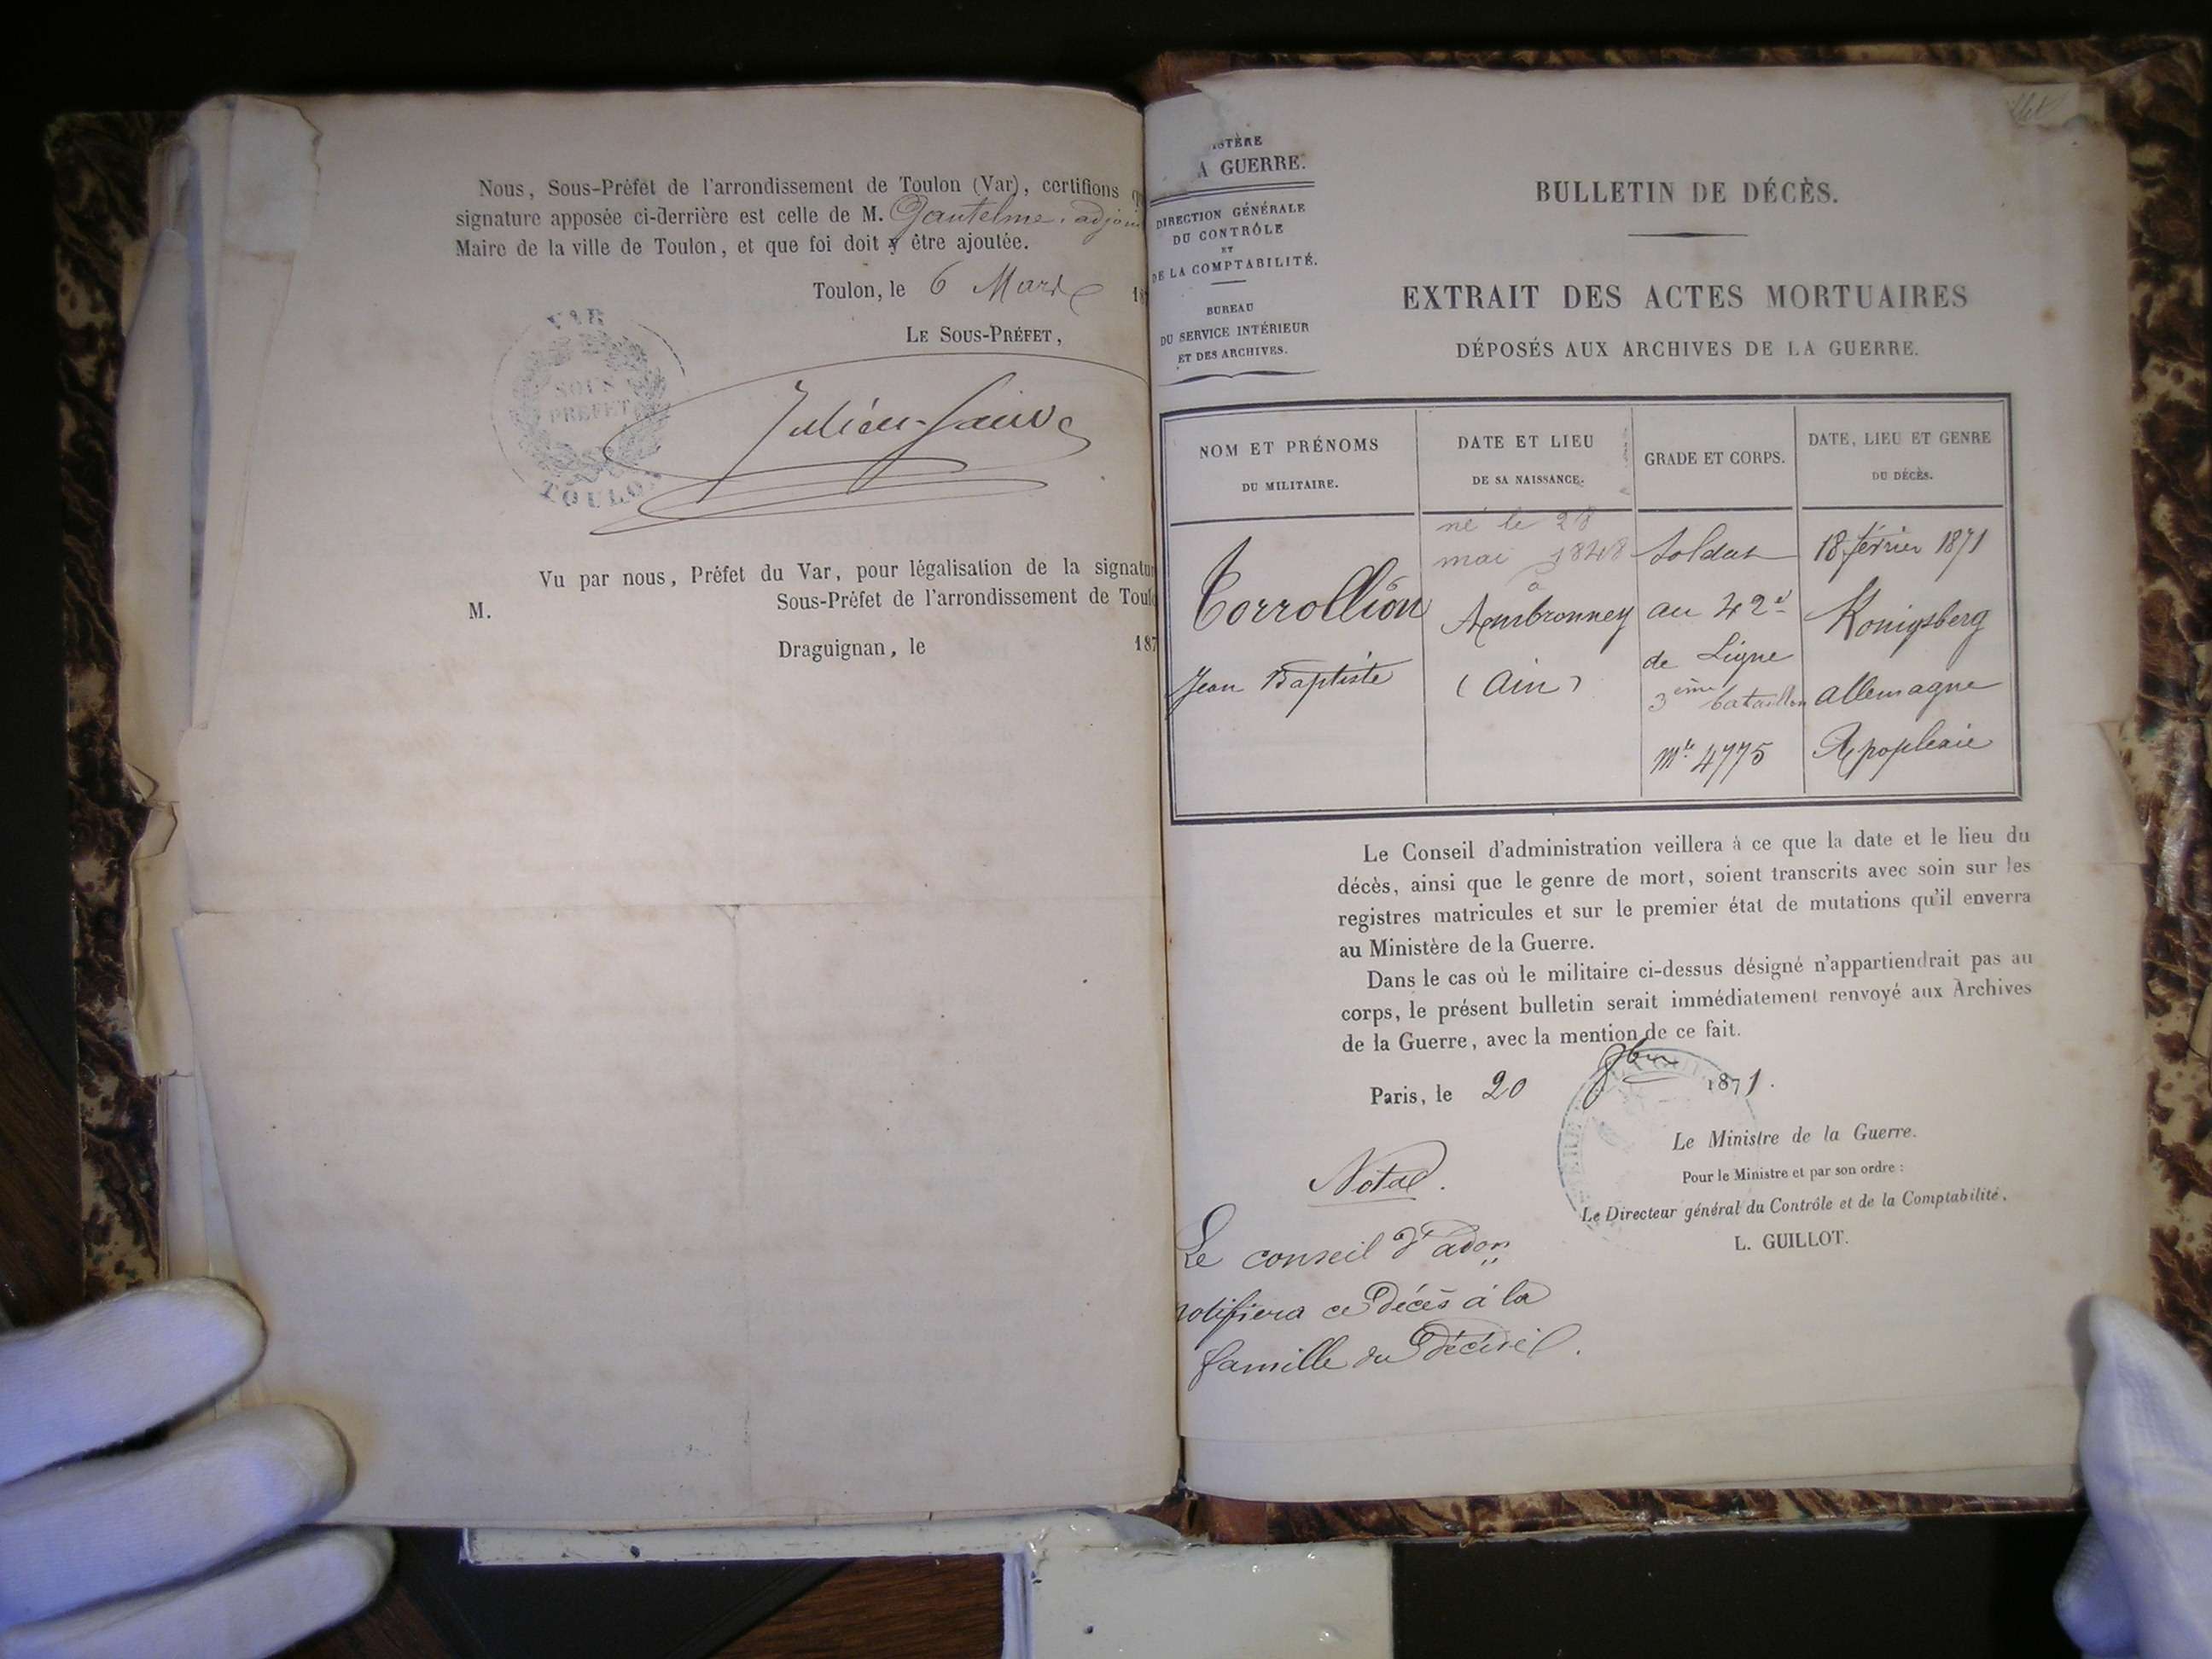 Nous, Sous-Préfet de l'arrondissement de Toulon (Var), certifions
signature apposée ci-derrière est celle de M. Gautelme, adjoin
Maire de la ville de Toulon, et que foi doit y être ajoutée.
Toulon, le 6 Mars 18
VAR
SOUS
PREFET
TOULON
LE SOUS-PRÉFET,
Vu par nous, Préfet du Var, pour légalisation de la signatu
M. Sous-Préfet de l'arrondissement de Toulo
Draguignan, le 187
ISTÈRE
A GUERRE.
DIRECTION GÉNÉRALE
DU CONTRÔLE
ET
DE LA COMPTABILITÉ.
BUREAU
DU SERVICE INTÉRIEUR
ET DES ARCHIVES.
BULLETIN DE DÉCÈS.
EXTRAIT DES ACTES MORTUAIRES
DÉPOSÉS AUX ARCHIVES DE LA GUERRE.
NOM ET PRÉNOMS
DU MILITAIRE.
DATE ET LIEU
DE SA NAISSANCE.
GRADE ET CORPS.
DATE, LIEU ET GENRE
DU DÉCÈS.
Corrollion
Jean Baptiste
né le 28
mai 1848
à
Ambronney
(Ain)
Soldat
au 42e
de Ligne
3ème bataillon
Mle 4775
18 février 1871
Konigsberg
Allemagne
Apoplexie
Le Conseil d'administration veillera à ce que la date et le lieu du
décès, ainsi que le genre de mort, soient transcrits avec soin sur les
registres matricules et sur le premier état de mutations qu'il enverra
au Ministère de la Guerre.
Dans le cas où le militaire ci-dessus désigné n'appartiendrait pas au
corps, le présent bulletin serait immédiatement renvoyé aux Archives
de la Guerre, avec la mention de ce fait.
Paris, le 20 9bre 1871.
Le Ministre de la Guerre.
Pour le Ministre et par son ordre :
Le Directeur général du Contrôle et de la Comptabilité,
L. GUILLOT.
Nota.
Le conseil d'adon
notifiera ce décès à la
famille du décédé.